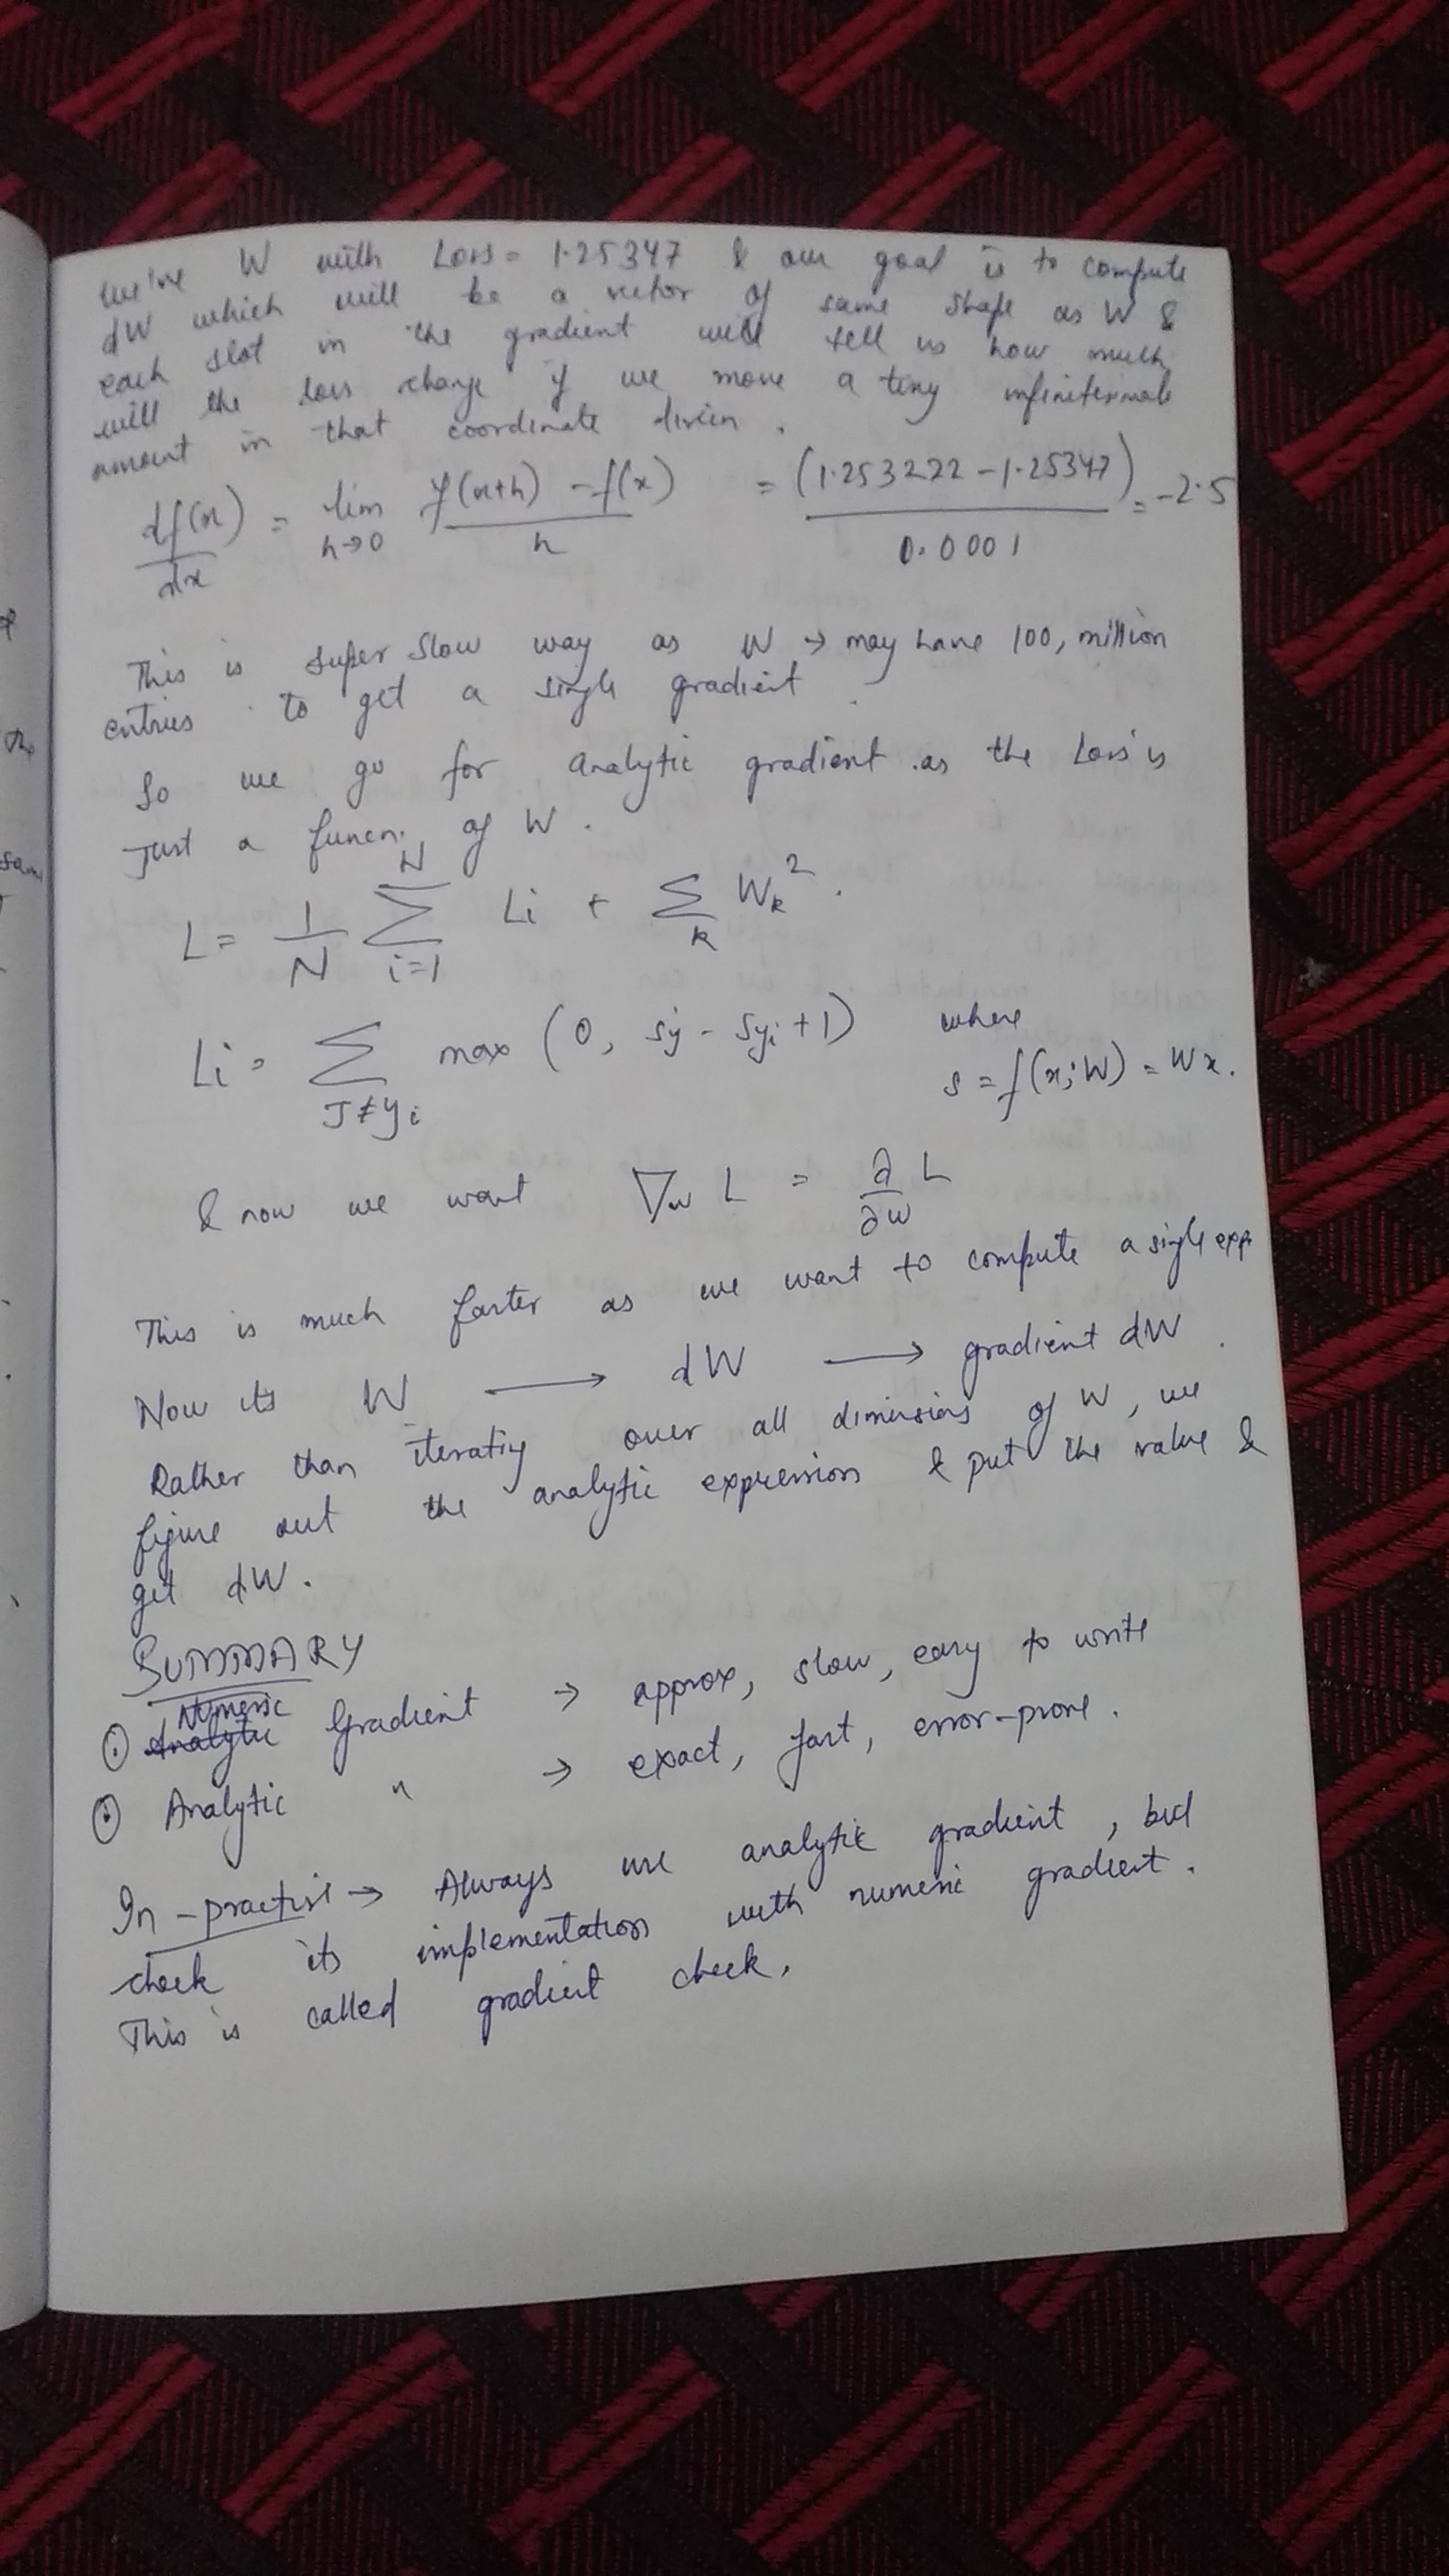 We've W with Loss = 1.25347 & our goal is to compute
dW which will be a vector of same shape as W &
each slot in the gradient will tell us how much
will the loss change if we move a tiny infinitesimale
amount in that coordinate diricn.
df(x)/dx = lim h→0 f(x+h) - f(x) / h = (1.253222 - 1.25347) / 0.0001 = -2.5
This is super slow way as W → may have 100, million
entries to get a single gradient
So we go for analytic gradient as the Loss is
Just a funcn. of W.
L = 1/N N Σ i=1 Li + Σ k Wk².
Li = Σ J≠yi max (0, sj - syi + 1) where
s = f(x; W) = Wx.
& now we want ∇w L = ∂/∂w L
This is much faster as we want to compute a single exp.
Now its W → dW → gradient dW.
Rather than iteratig over all dimensions of W, we
figure out the analytic expression & put the value &
get dW.
SUMMARY
① Numeric Gradient → approx, slow, easy to write
Analytic " → exact, fast, error-prone.
In-practise → Always use analytic gradient, but
check its implementation with numeric gradient.
This is called gradient check.